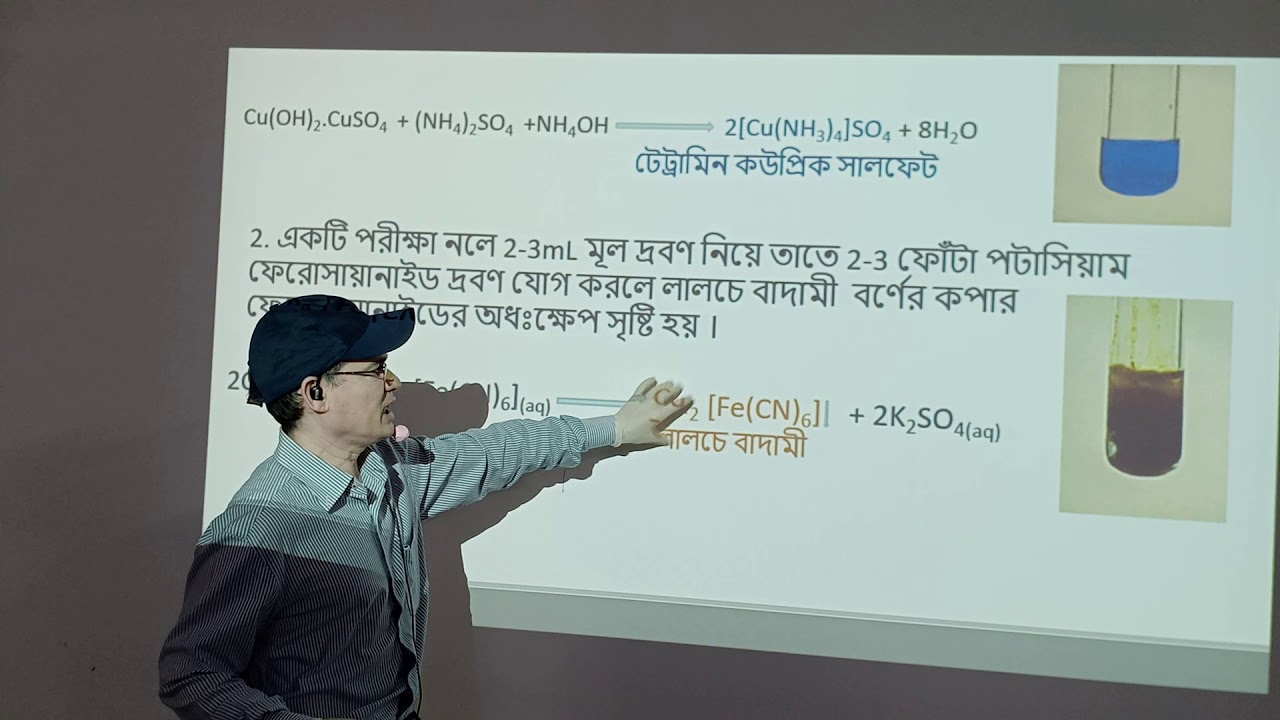 Cu(OH)₂.CuSO₄ + (NH₄)₂SO₄ +NH₄OH ⟶ 2[Cu(NH₃)₄]SO₄ + 8H₂O
টেট্রামিন কউপ্রিক সালফেট
2. একটি পরীক্ষা নলে 2-3mL মূল দ্রবণ নিয়ে তাতে 2-3 ফোঁটা পটাসিয়াম
ফেরোসায়ানাইড দ্রবণ যোগ করলে লালচে বাদামী বর্ণের কপার
অধঃক্ষেপ সৃষ্টি হয় ।
)₆](aq) ⟶ ₂ [Fe(CN)₆]↓ + 2K₂SO₄(aq)
লালচে বাদামী